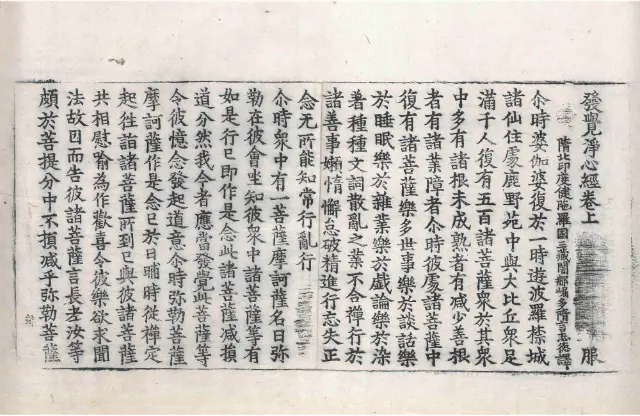 發覺淨心經卷上 服
隋北印度揵陁羅國三藏闍那崛多隋言志德譯
尒時婆伽婆復於一時遊波羅㮈城
諸仙住處鹿野苑中與大比丘衆足
滿千人復有五百諸菩薩衆於其衆
中多有諸根未成熟者有減少善根
者有諸業障者尒時彼處諸菩薩中
復有諸菩薩樂多世事樂於談話樂
於睡眠樂於雜業樂於戱論樂於染
著種種文詞散亂之業不合禪行於
諸善事嬾惰懈怠破精進行忘失正
念无所能知常行亂行
尒時衆中有一菩薩摩訶薩名曰弥
勒在彼會坐知彼衆中諸菩薩等有
如是行已即作是念此諸菩薩減損
道分然我今者應當發覺此菩薩等
令彼憶念發起道意尒時弥勒菩薩
摩訶薩作是念已於日晡時從禪定
起往詣諸菩薩所到已與彼諸菩薩
共相慰喩為作歡喜令彼樂欲求聞
法故因而告彼諸菩薩言長老汝等
頗於菩提分中不損減乎弥勒菩薩